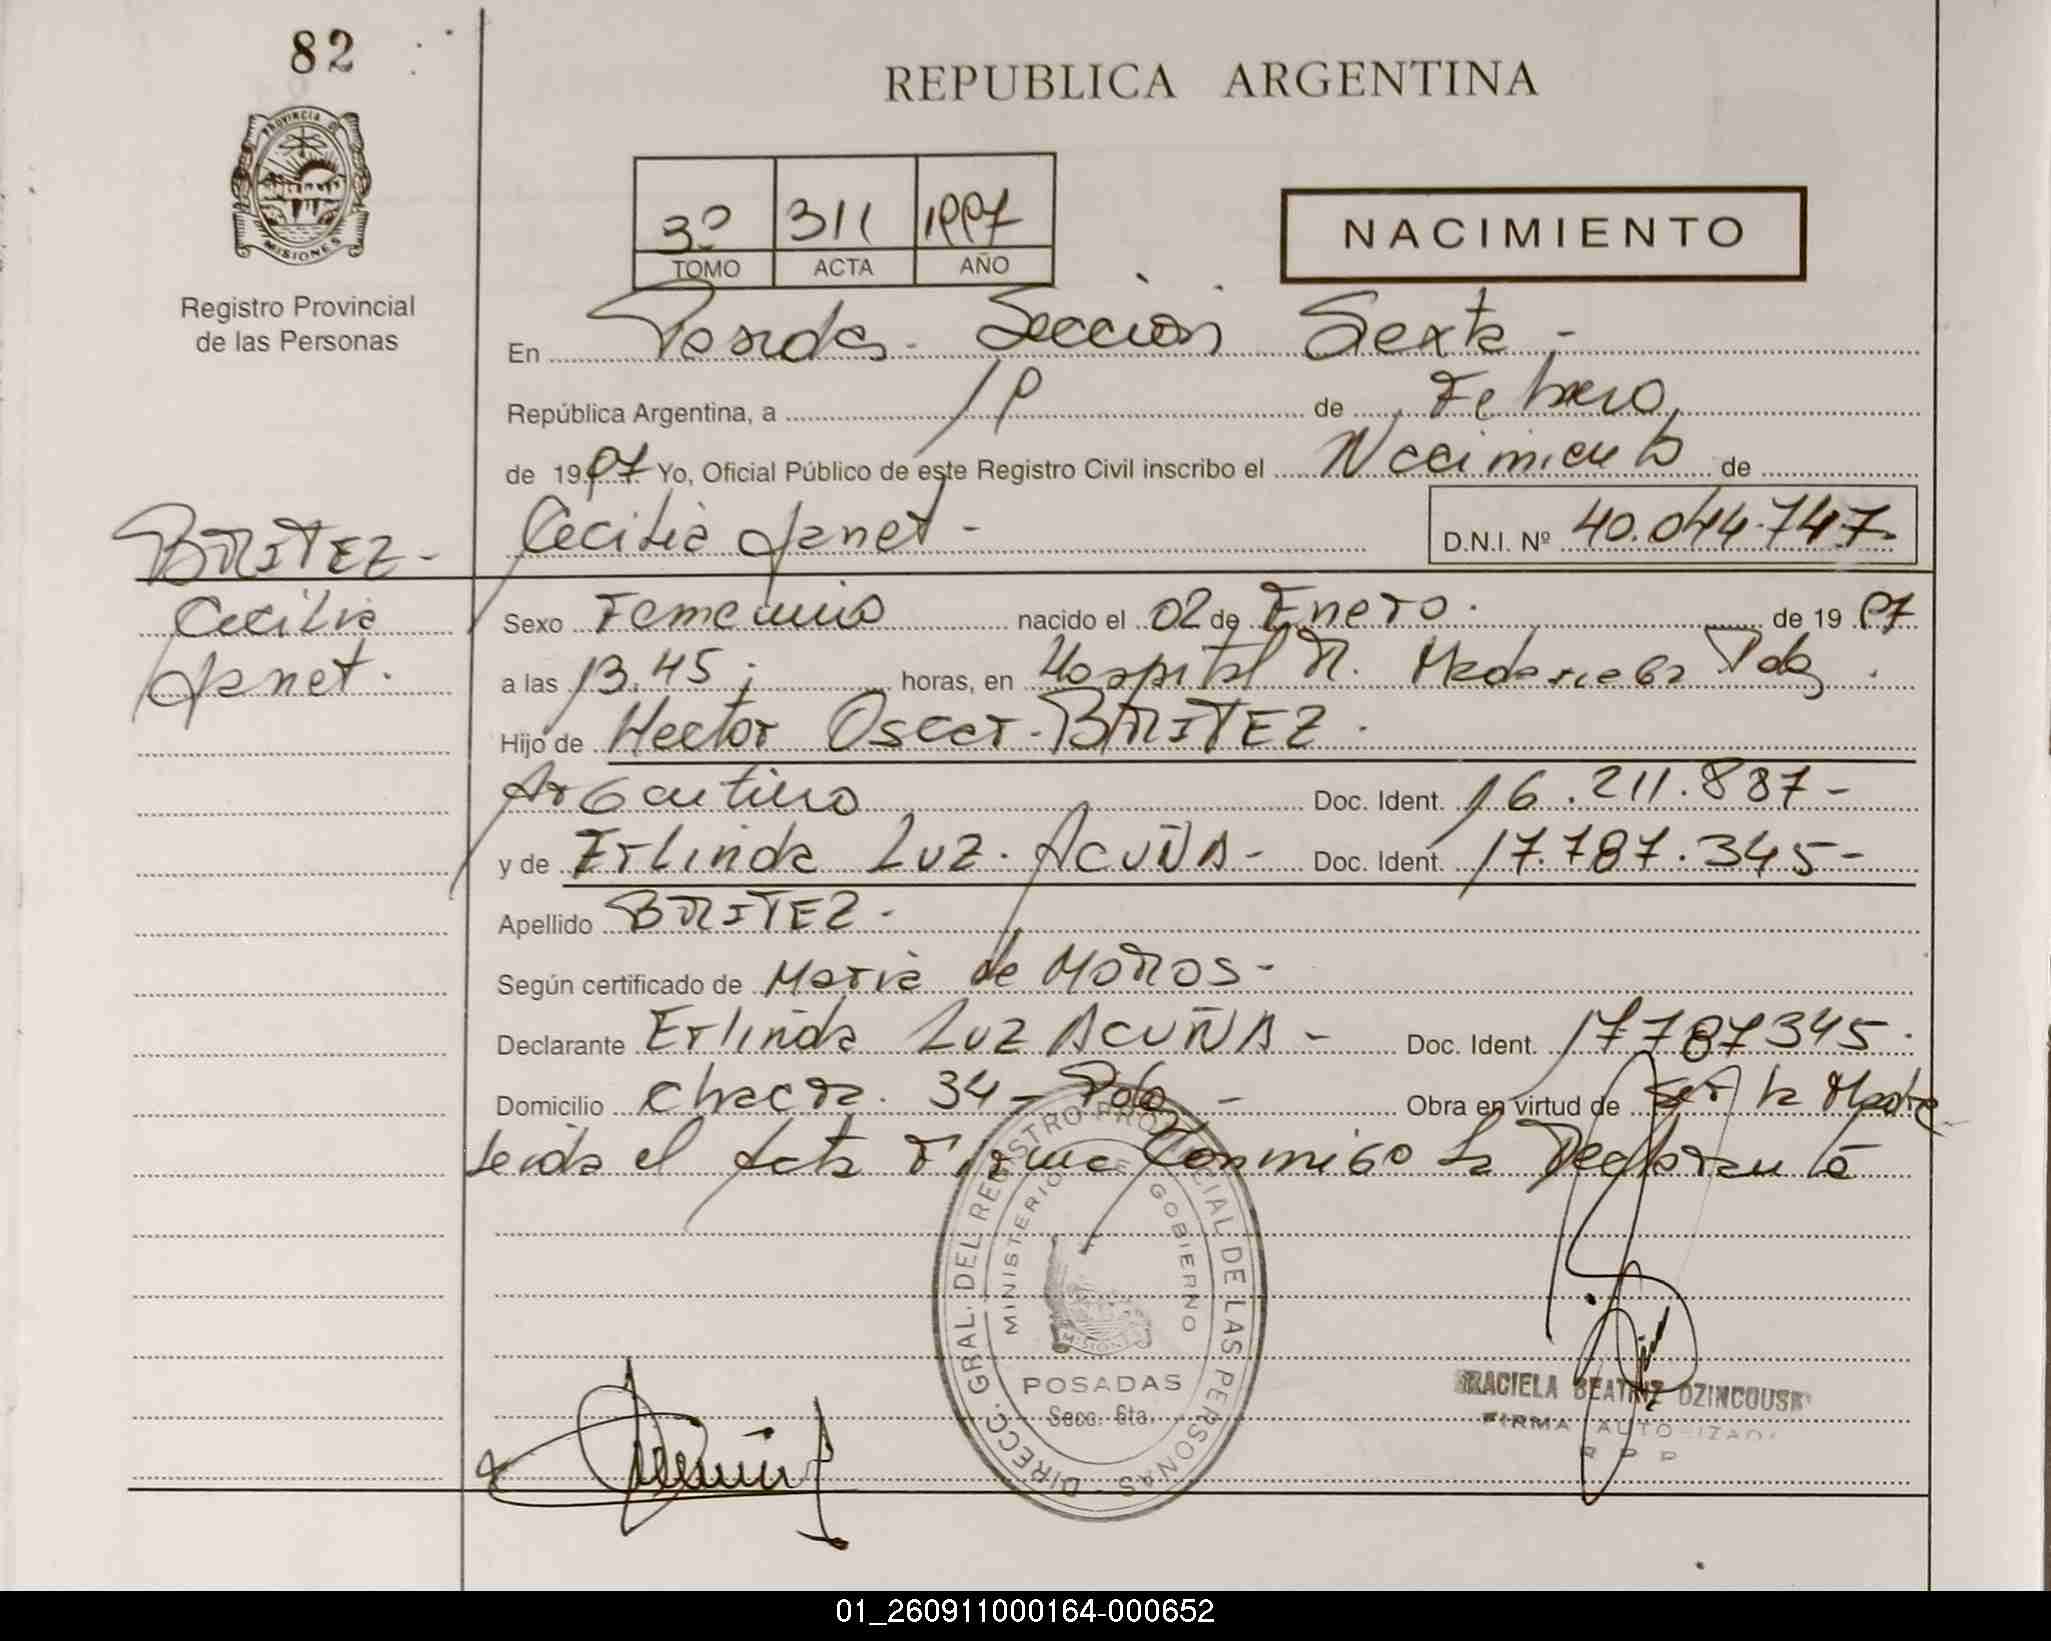 82
REPUBLICA ARGENTINA
PROVINCIA DE MISIONES
Registro Provincial
de las Personas
3º 311 1997
TOMO ACTA AÑO
NACIMIENTO
En Posadas - Sección Sexta -
República Argentina, a 19 de Febrero
de 1997 Yo, Oficial Público de este Registro Civil inscribo el Nacimiento de
Cecilia Janet - D.N.I. Nº 40.044.747-
BRITEZ -
Cecilia
Janet.
Sexo Femenino nacido el 02 de Enero. de 1997
a las 13.45 horas, en Hospital R. Madariaga Pdas
Hijo de Hector Oscar - BRITEZ.
Argentino Doc. Ident. 16.211.887-
y de Erlinda Luz. ACUÑA- Doc. Ident. 17.787.345-
Apellido BRITEZ-
Según certificado de Maria de
Declarante Erlinda Luz ACUÑA - Doc. Ident. 17787345.
Domicilio chacra. 34 - Pdas - Obra en virtud de Ser la Madre
Leida el Acta Firma Conmigo La Declarante
DIRECC. GRAL. DEL REGISTRO PROVINCIAL DE LAS PERSONAS
MINISTERIO DE GOBIERNO
POSADAS
Secc. 6ta.
GRACIELA BEATRIZ
FIRMA AUTORIZADA
R P P
01_260911000164-000652